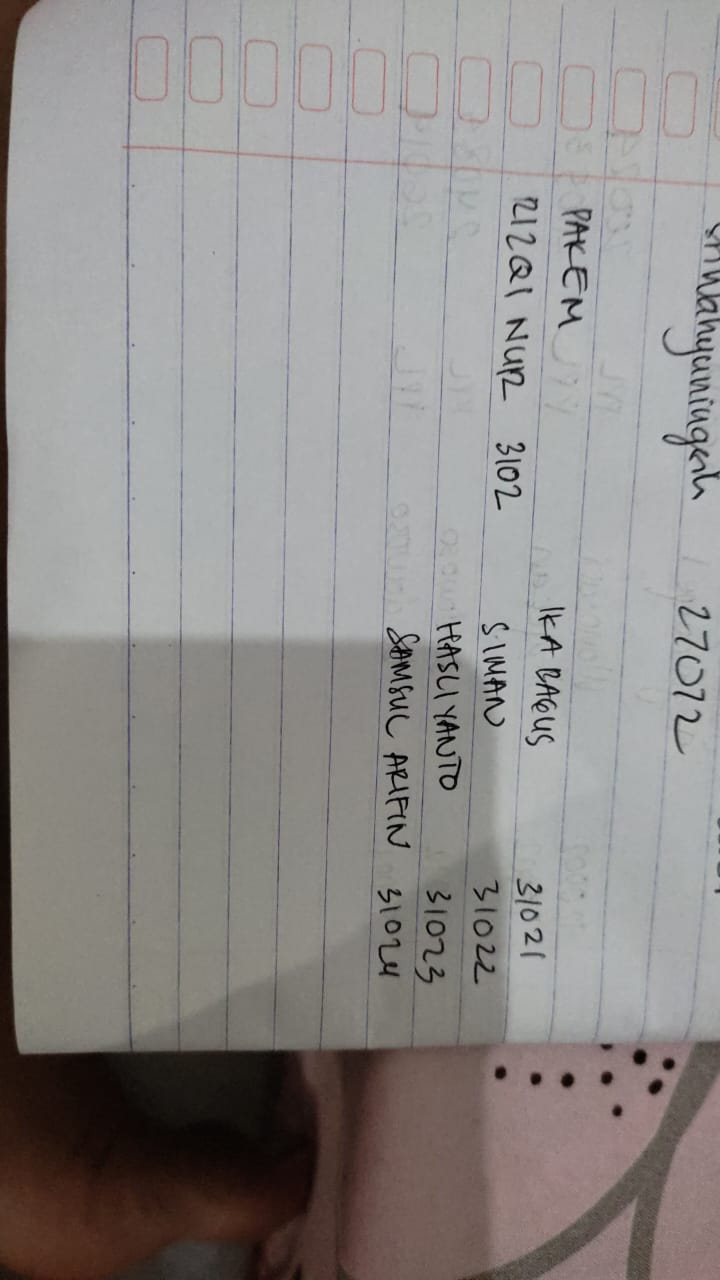 Sriwahyuningsih 27072
PAKEM
IKA BAGUS 31021
RIZQI NUR 3102
SIMAN 31022
HASLIYANTO 31023
SAMSUL ARIFIN 31024